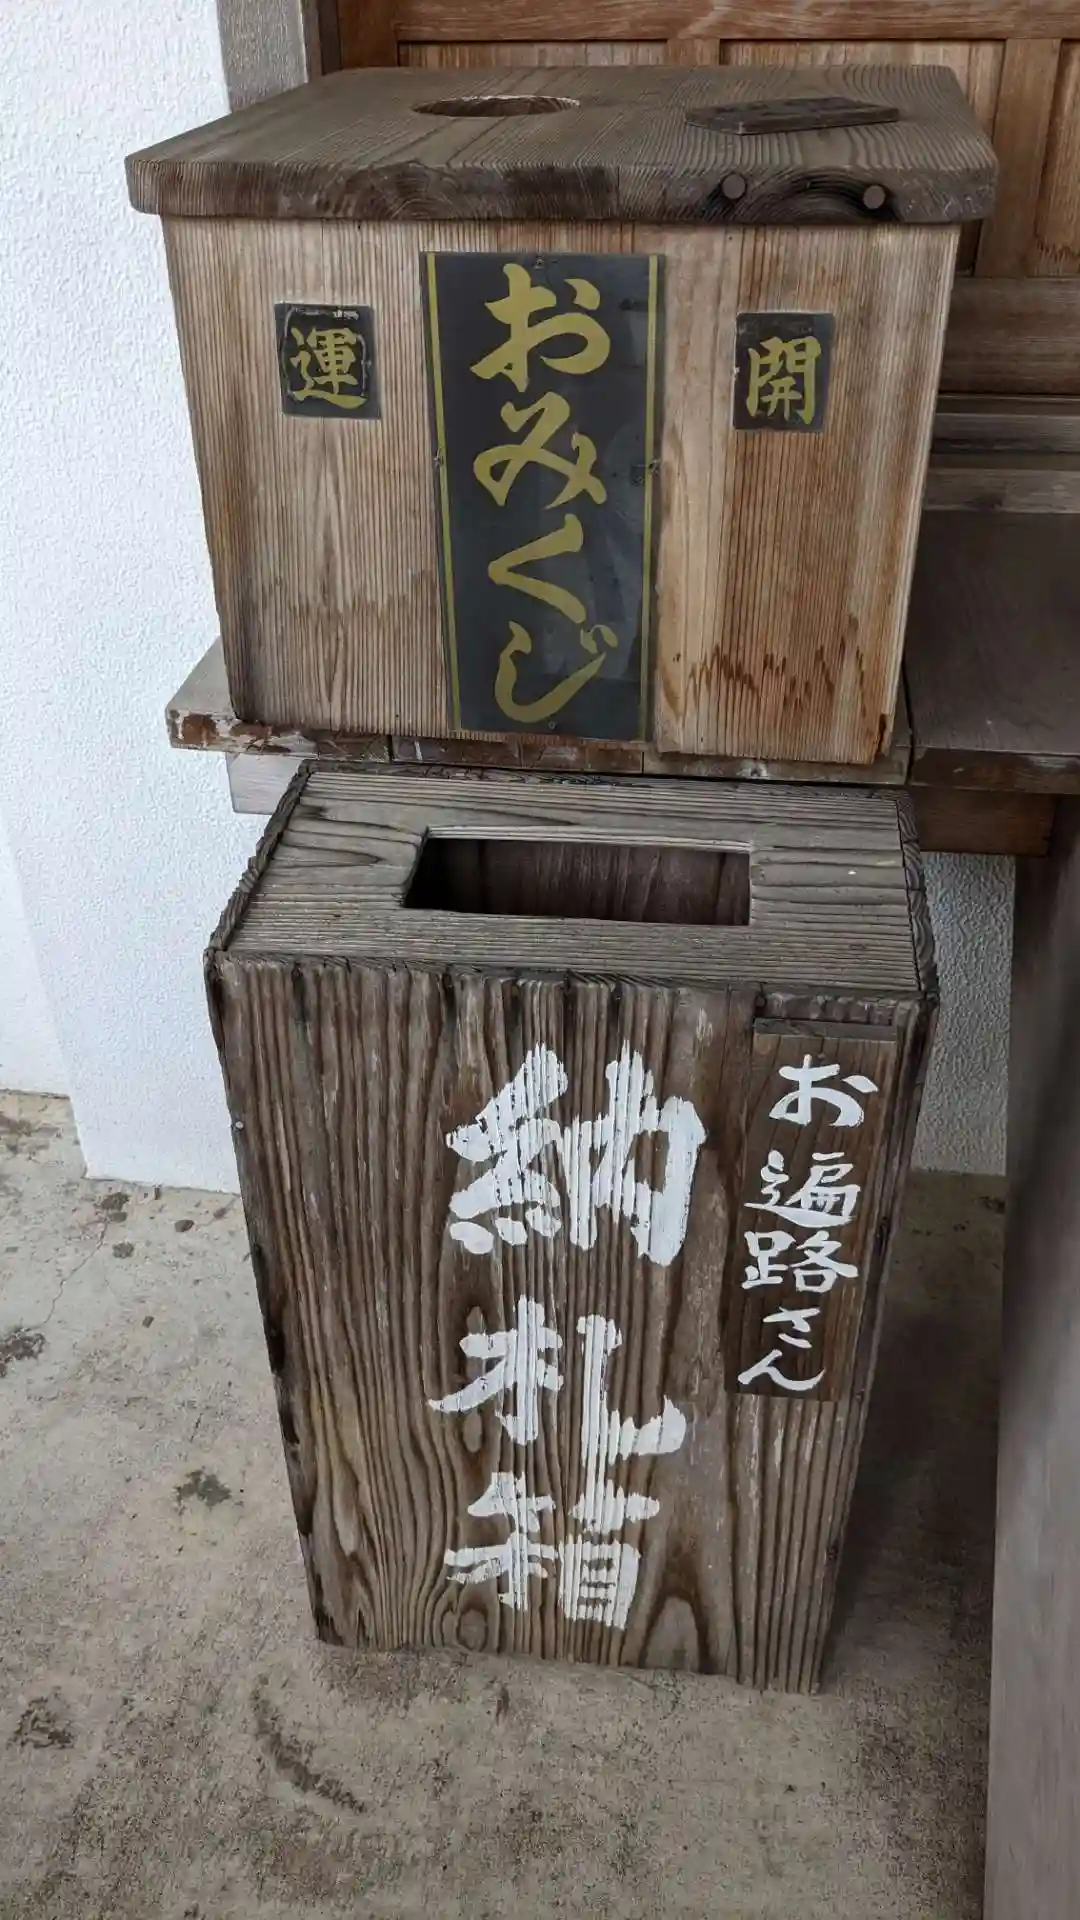 開
おみくじ
運
お遍路さん
納札箱